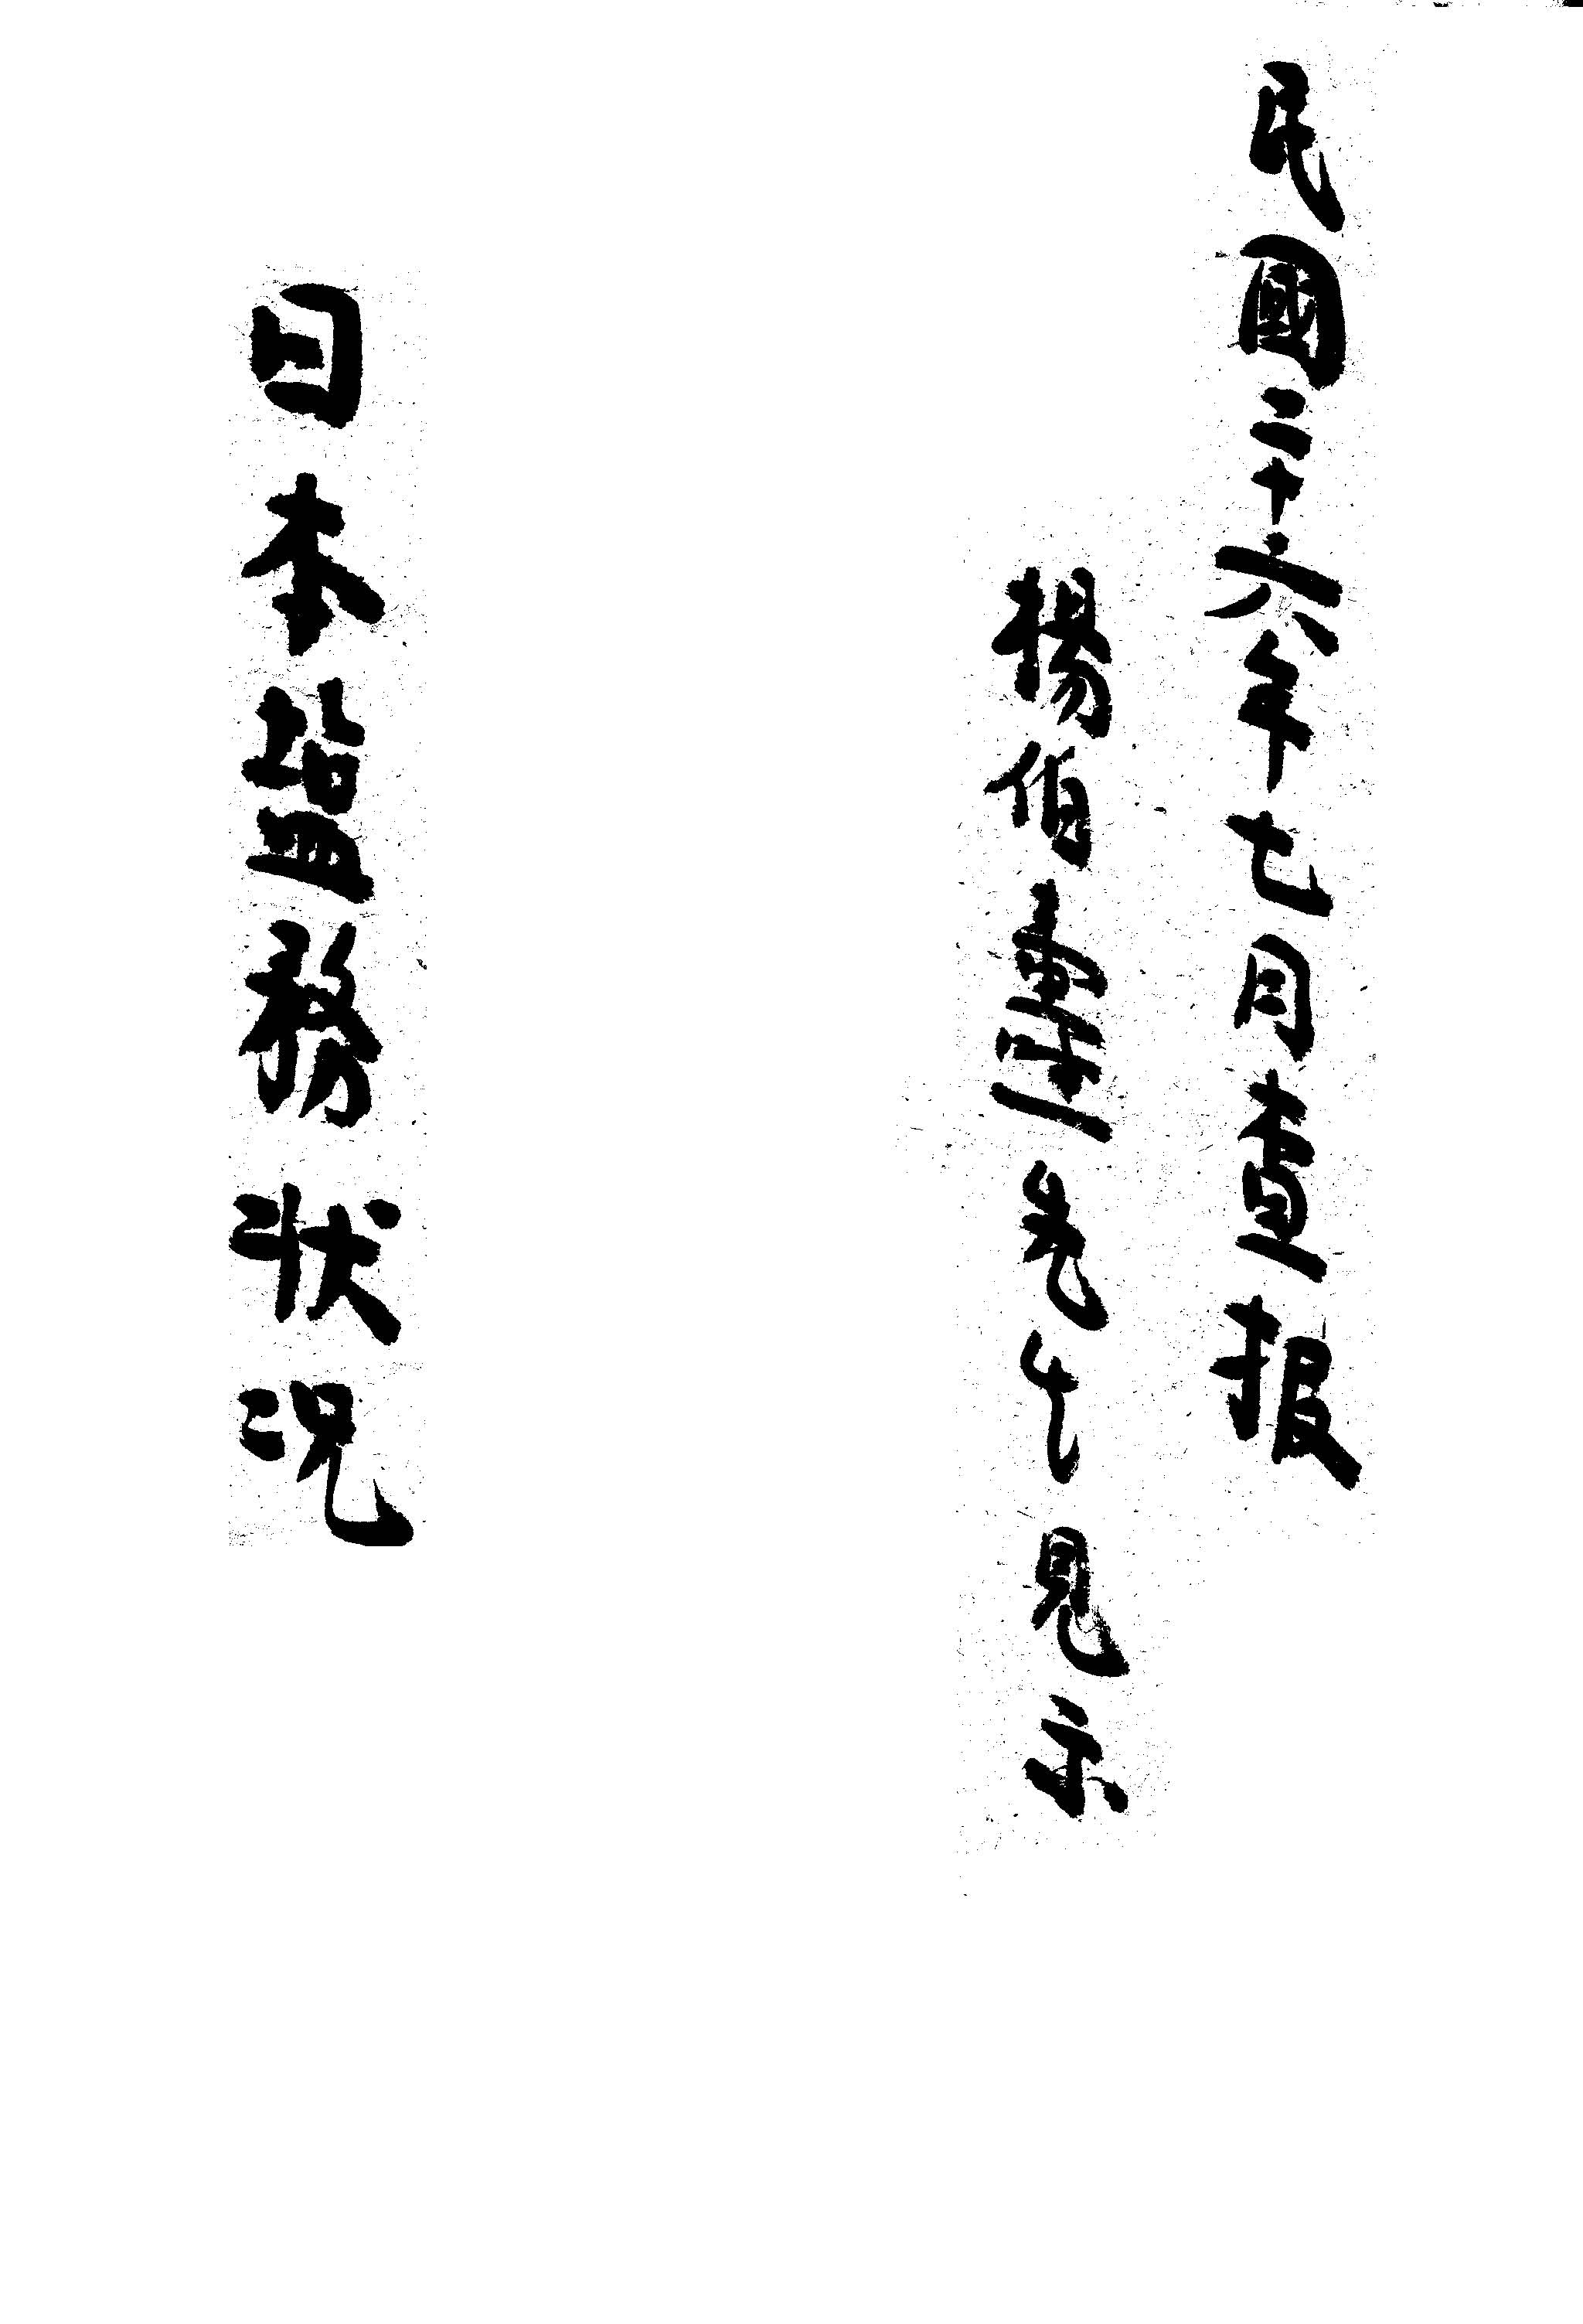 民國二十六年七月查報
楊伯先生見示
日本盐務状况